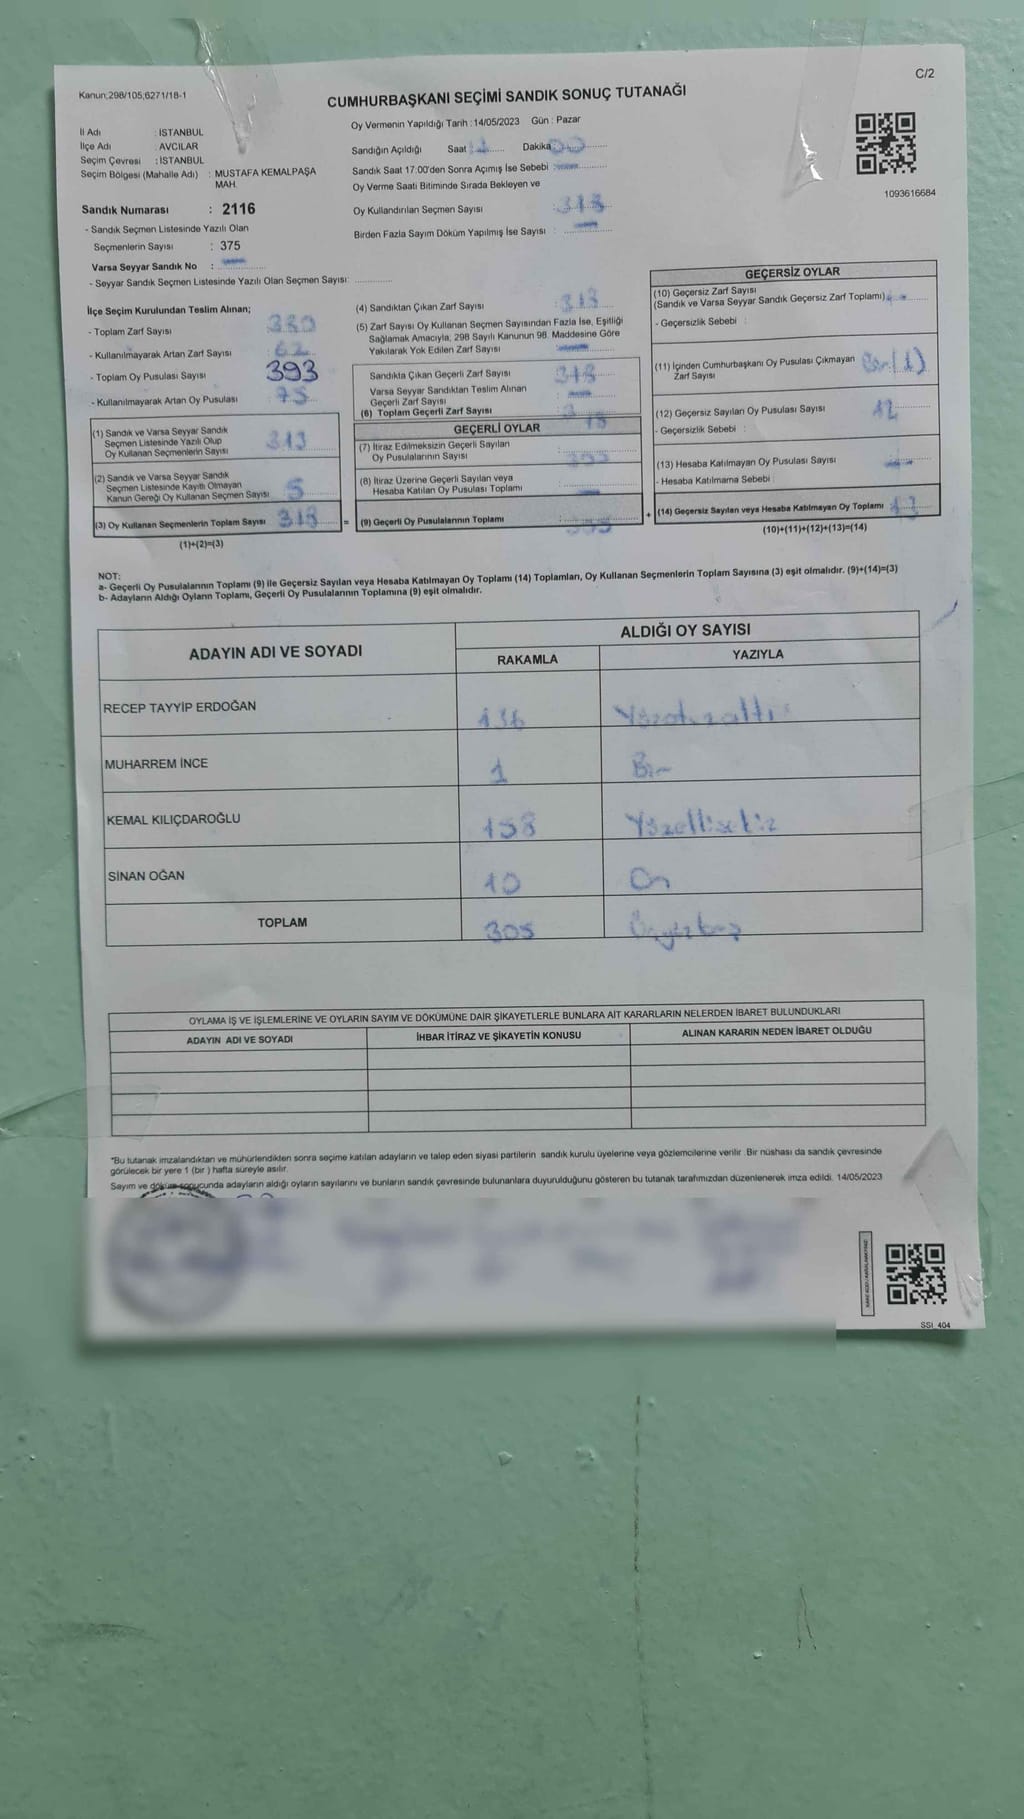 C/2
Kanun:298/105;6271/18-1
CUMHURBAŞKANI SEÇİMİ SANDIK SONUÇ TUTANAĞI
İl Adı : İSTANBUL
İlçe Adı : AVCILAR
Seçim Çevresi : İSTANBUL
Seçim Bölgesi (Mahalle Adı) : MUSTAFA KEMALPAŞA
MAH.
Sandık Numarası : 2116
- Sandık Seçmen Listesinde Yazılı Olan
Seçmenlerin Sayısı : 375
Varsa Seyyar Sandık No :
- Seyyar Sandık Seçmen Listesinde Yazılı Olan Seçmen Sayısı:
Oy Vermenin Yapıldığı Tarih :14/05/2023 Gün : Pazar
Sandığın Açıldığı Saat Dakika 00
Sandık Saat 17:00'den Sonra Açımış İse Sebebi :
Oy Verme Saati Bitiminde Sırada Bekleyen ve
Oy Kullandırılan Seçmen Sayısı : 318
Birden Fazla Sayım Döküm Yapılmış İse Sayısı :
1093616684
İlçe Seçim Kurulundan Teslim Alınan;
- Toplam Zarf Sayısı 380
- Kullanılmayarak Artan Zarf Sayısı : 62
- Toplam Oy Pusulası Sayısı 393
- Kullanılmayarak Artan Oy Pusulası : 75
(1) Sandık ve Varsa Seyyar Sandık
Seçmen Listesinde Yazılı Olup
Oy Kullanan Seçmenlerin Sayısı 313
(2) Sandık ve Varsa Seyyar Sandık
Seçmen Listesinde Kayıtlı Olmayan
Kanun Gereği Oy Kullanan Seçmen Sayısı 5
(3) Oy Kullanan Seçmenlerin Toplam Sayısı 318 =
(1)+(2)=(3)
(4) Sandıktan Çıkan Zarf Sayısı : 318
(5) Zarf Sayısı Oy Kullanan Seçmen Sayısından Fazla İse, Eşitliği
Sağlamak Amacıyla, 298 Sayılı Kanunun 98. Maddesine Göre
Yakılarak Yok Edilen Zarf Sayısı
Sandıkta Çıkan Geçerli Zarf Sayısı : 318
Varsa Seyyar Sandıktan Teslim Alınan
Geçerli Zarf Sayısı
(6) Toplam Geçerli Zarf Sayısı : 318
GEÇERLİ OYLAR
(7) İtiraz Edilmeksizin Geçerli Sayılan
Oy Pusulalarının Sayısı
(8) İtiraz Üzerine Geçerli Sayılan veya
Hesaba Katılan Oy Pusulası Toplamı
(9) Geçerli Oy Pusulalarının Toplamı : +
GEÇERSİZ OYLAR
(10) Geçersiz Zarf Sayısı
(Sandık ve Varsa Seyyar Sandık Geçersiz Zarf Toplamı)
- Geçersizlik Sebebi :
(11) İçinden Cumhurbaşkanı Oy Pusulası Çıkmayan
Zarf Sayısı (1)
(12) Geçersiz Sayılan Oy Pusulası Sayısı 12
- Geçersizlik Sebebi :
(13) Hesaba Katılmayan Oy Pusulası Sayısı
- Hesaba Katılmama Sebebi
(14) Geçersiz Sayılan veya Hesaba Katılmayan Oy Toplamı 13
(10)+(11)+(12)+(13)=(14)
NOT:
a- Geçerli Oy Pusulalarının Toplamı (9) ile Geçersiz Sayılan veya Hesaba Katılmayan Oy Toplamı (14) Toplamları, Oy Kullanan Seçmenlerin Toplam Sayısına (3) eşit olmalıdır. (9)+(14)=(3)
b- Adayların Aldığı Oyların Toplamı, Geçerli Oy Pusulalarının Toplamına (9) eşit olmalıdır.
ADAYIN ADI VE SOYADI ALDIĞI OY SAYISI
RAKAMLA YAZIYLA
RECEP TAYYİP ERDOĞAN 136 Yüzotuzaltı
MUHARREM İNCE 1 Bir
KEMAL KILIÇDAROĞLU 158 Yüzellisekiz
SİNAN OĞAN 10 On
TOPLAM 305 Üçyüzbeş
OYLAMA İŞ VE İŞLEMLERİNE VE OYLARIN SAYIM VE DÖKÜMÜNE DAİR ŞİKAYETLERLE BUNLARA AİT KARARLARIN NELERDEN İBARET BULUNDUKLARI
ADAYIN ADI VE SOYADI İHBAR İTİRAZ VE ŞİKAYETİN KONUSU ALINAN KARARIN NEDEN İBARET OLDUĞU
*Bu tutanak imzalandıktan ve mühürlendikten sonra seçime katılan adayların ve talep eden siyasi partilerin sandık kurulu üyelerine veya gözlemcilerine verilir. Bir nüshası da sandık çevresinde
görülecek bir yere 1 (bir ) hafta süreyle asılır.
Sayım ve döküm sonucunda adayların aldığı oyların sayılarını ve bunların sandık çevresinde bulunanlara duyurulduğunu gösteren bu tutanak tarafımızdan düzenlenerek imza edildi. 14/05/2023
SSI_404